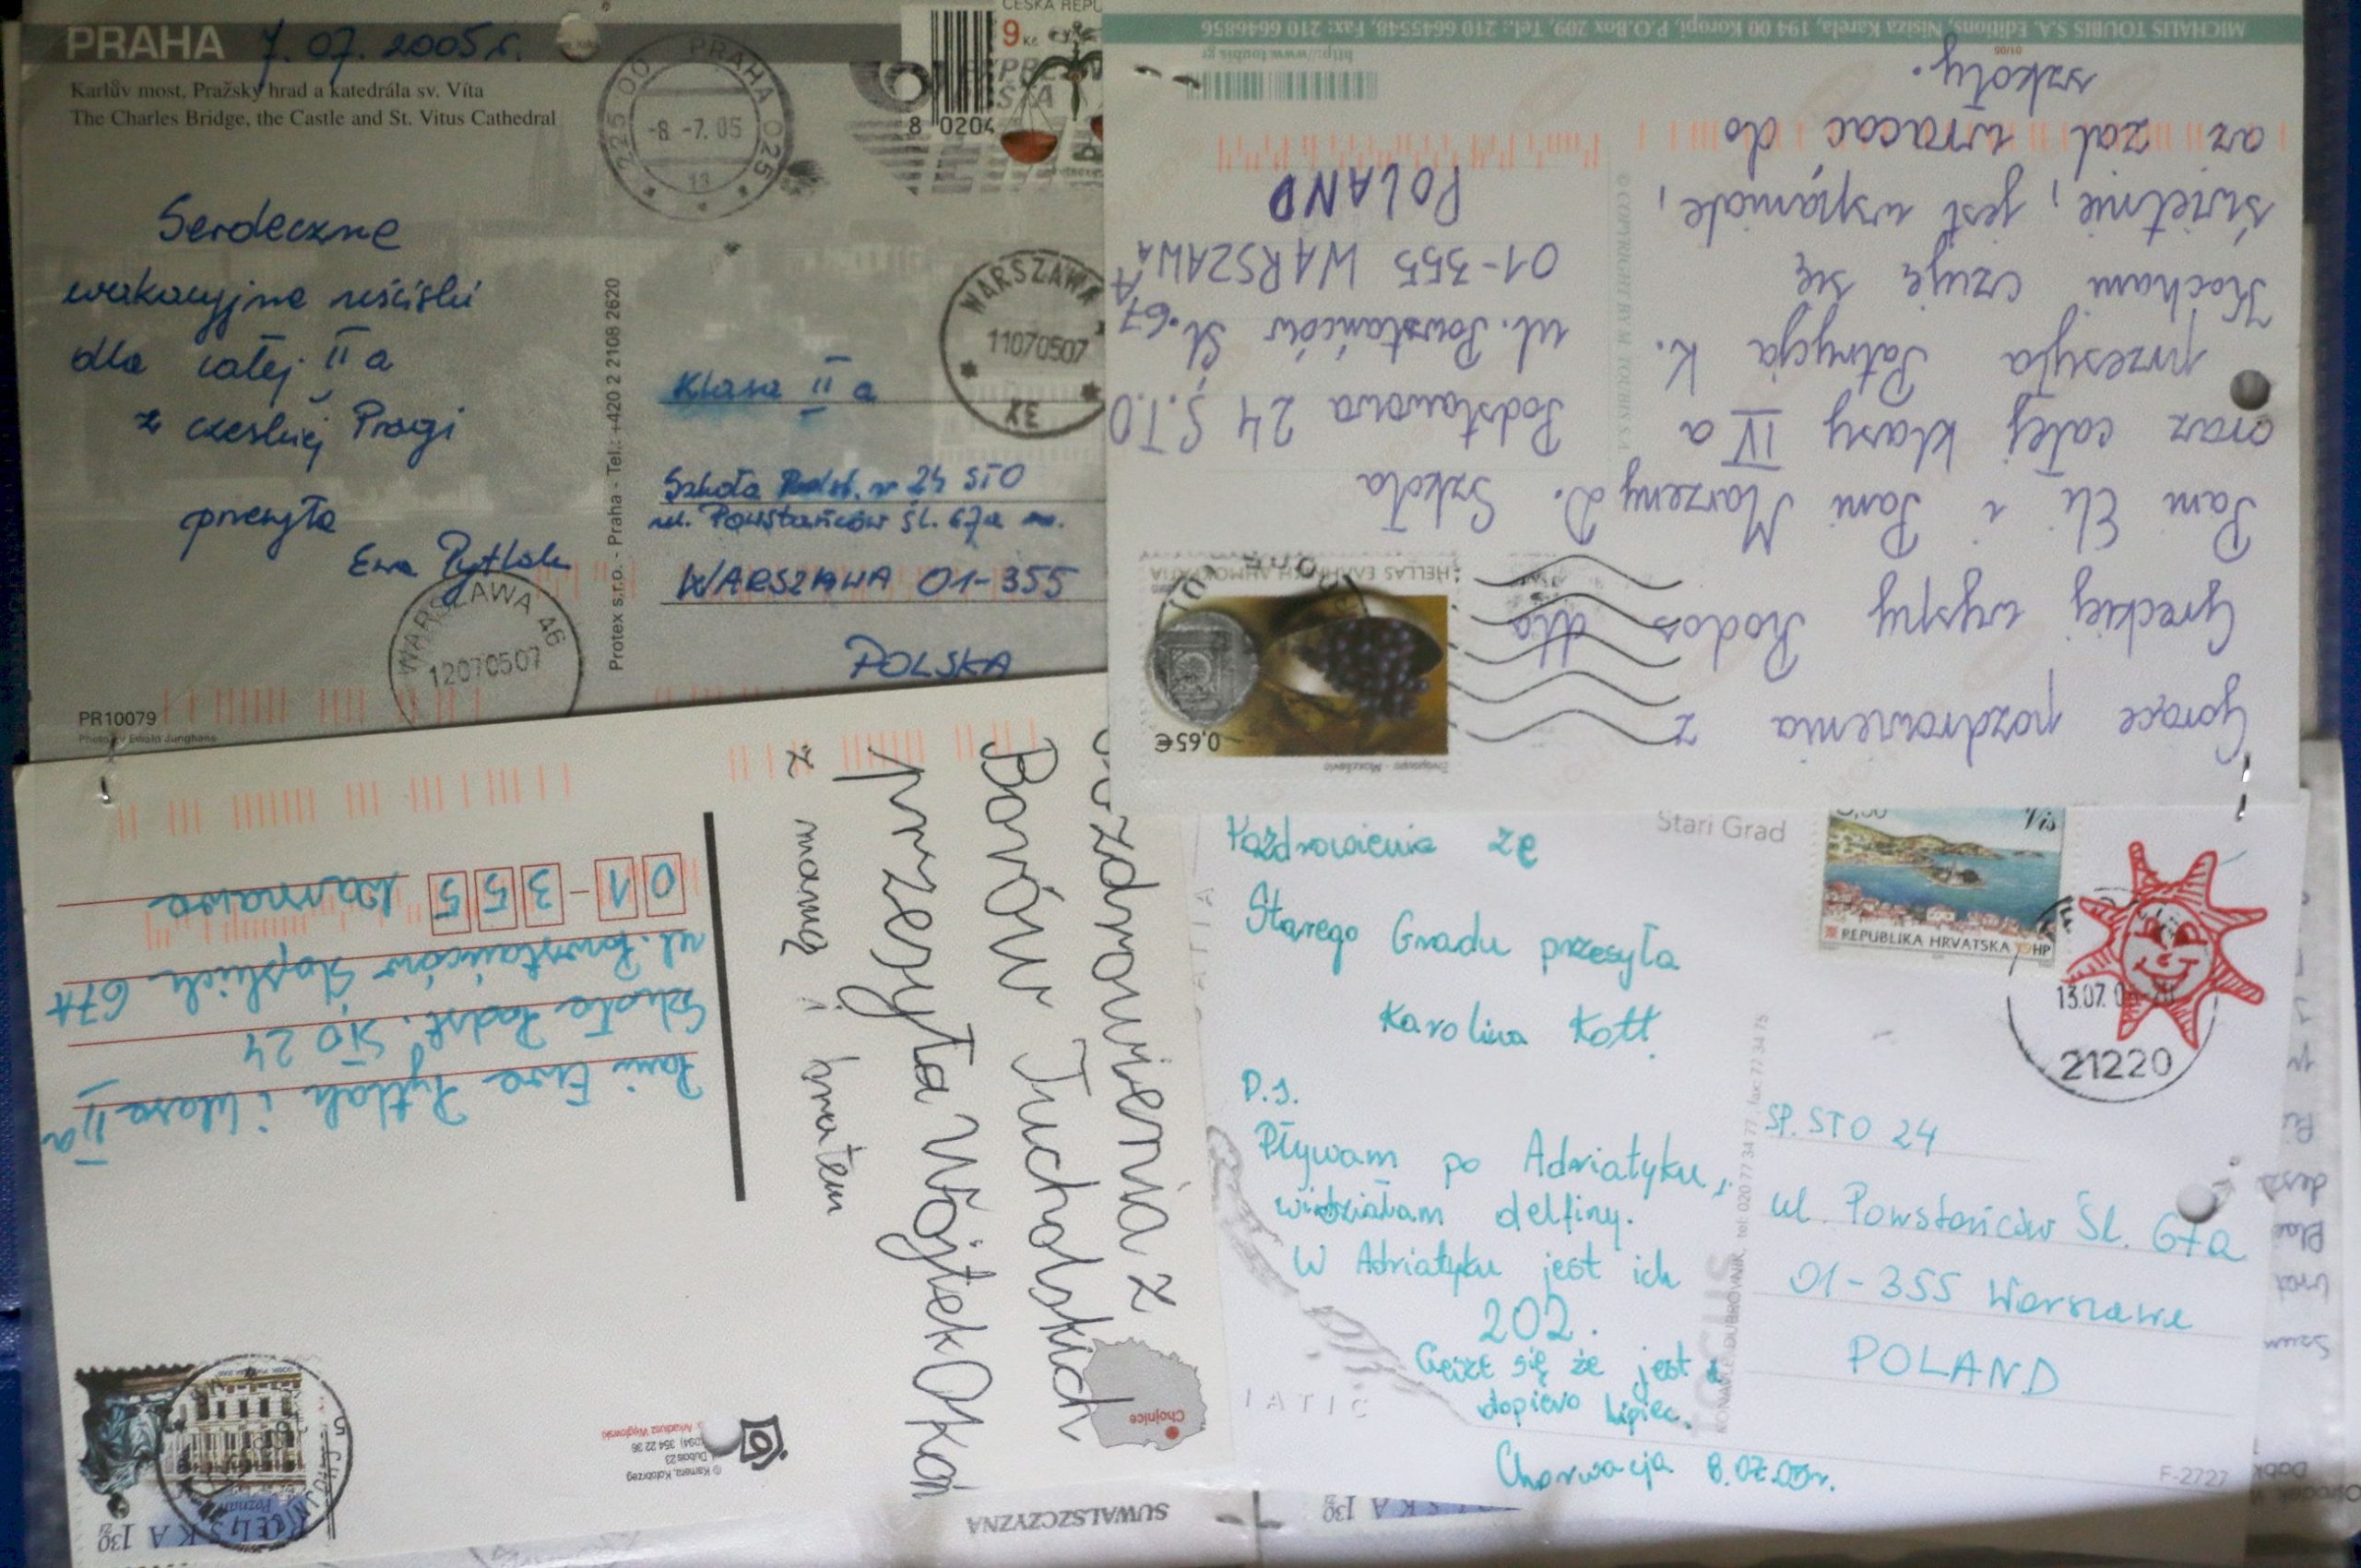 PRAHA 7.07.2005r.
Karlův most, Pražský hrad a katedrála sv. Víta
The Charles Bridge, the Castle and St. Vitus Cathedral
Serdeczne
wakacyjne uściski
dla całej II a
z czeskiej Pragi
przesyła
Ewa Pytlak
PR10079
Protex s.r.o. - Praha - Tel.: +420 2 2108 2620
225 00 PRAHA 025
-8.-7.05
13
ČESKÁ REPU
9 Kč
8 0204
WARSZAWA
11070507
XE
Klasa II a
Szkoła Podst. nr 24 STO
ul. Powstańców Śl. 67a
WARSZAWA 01-355
POLSKA
WARSZAWA 46
12070507
MICHALIS TOUBIS S.A. Editions, Nisiza Karela, 194 00 Koropi, P.O.Box 209, Tel.: 210 6645548, Fax: 210 6646856
http://www.toubis.gr
Gorące pozdrowienia z
Greckiej wyspy Rodos dla
Pani Eli i Pani Marzeny D.
oraz całej klasy IV a
przesyła Patrycja K.
Kocham czuję się
świetnie, jest wspaniale,
aż żal wracać do
szkoły.
0,65€
Szkoła
Podstawowa 24 S.T.O
ul. Powstańców Śl. 67A
01-355 WARSZAWA
POLAND
Pozdrowienia z
Borów Tucholskich
przesyła Wojtek Okoń
z mamą i bratem
Pani Ewa Pytlak i klasa II a
Szkoła Podst. STO 24
ul. Powstańców Śląskich 67A
01-355 Warszawa
POLSKA 130
Poznań
© Kamera, Kołobrzeg
Dubois 23
(094) 354 22 36
Arkadiusz Węglowski
Chojnice
SUWALSZCZYZNA
Stari Grad
Pozdrowienia ze
Starego Gradu przesyła
Karolina Kott.
P.S.
Pływam po Adriatyku,
widziałam delfiny.
W Adriatyku jest ich
202.
Cieszę się że jest
dopiero lipiec.
Chorwacja 8.07.05r.
Vis
REPUBLIKA HRVATSKA HP
13.07.
21220
SP. STO 24
ul. Powstańców Śl. 67a
01-355 Warszawa
POLAND
F-2727
130